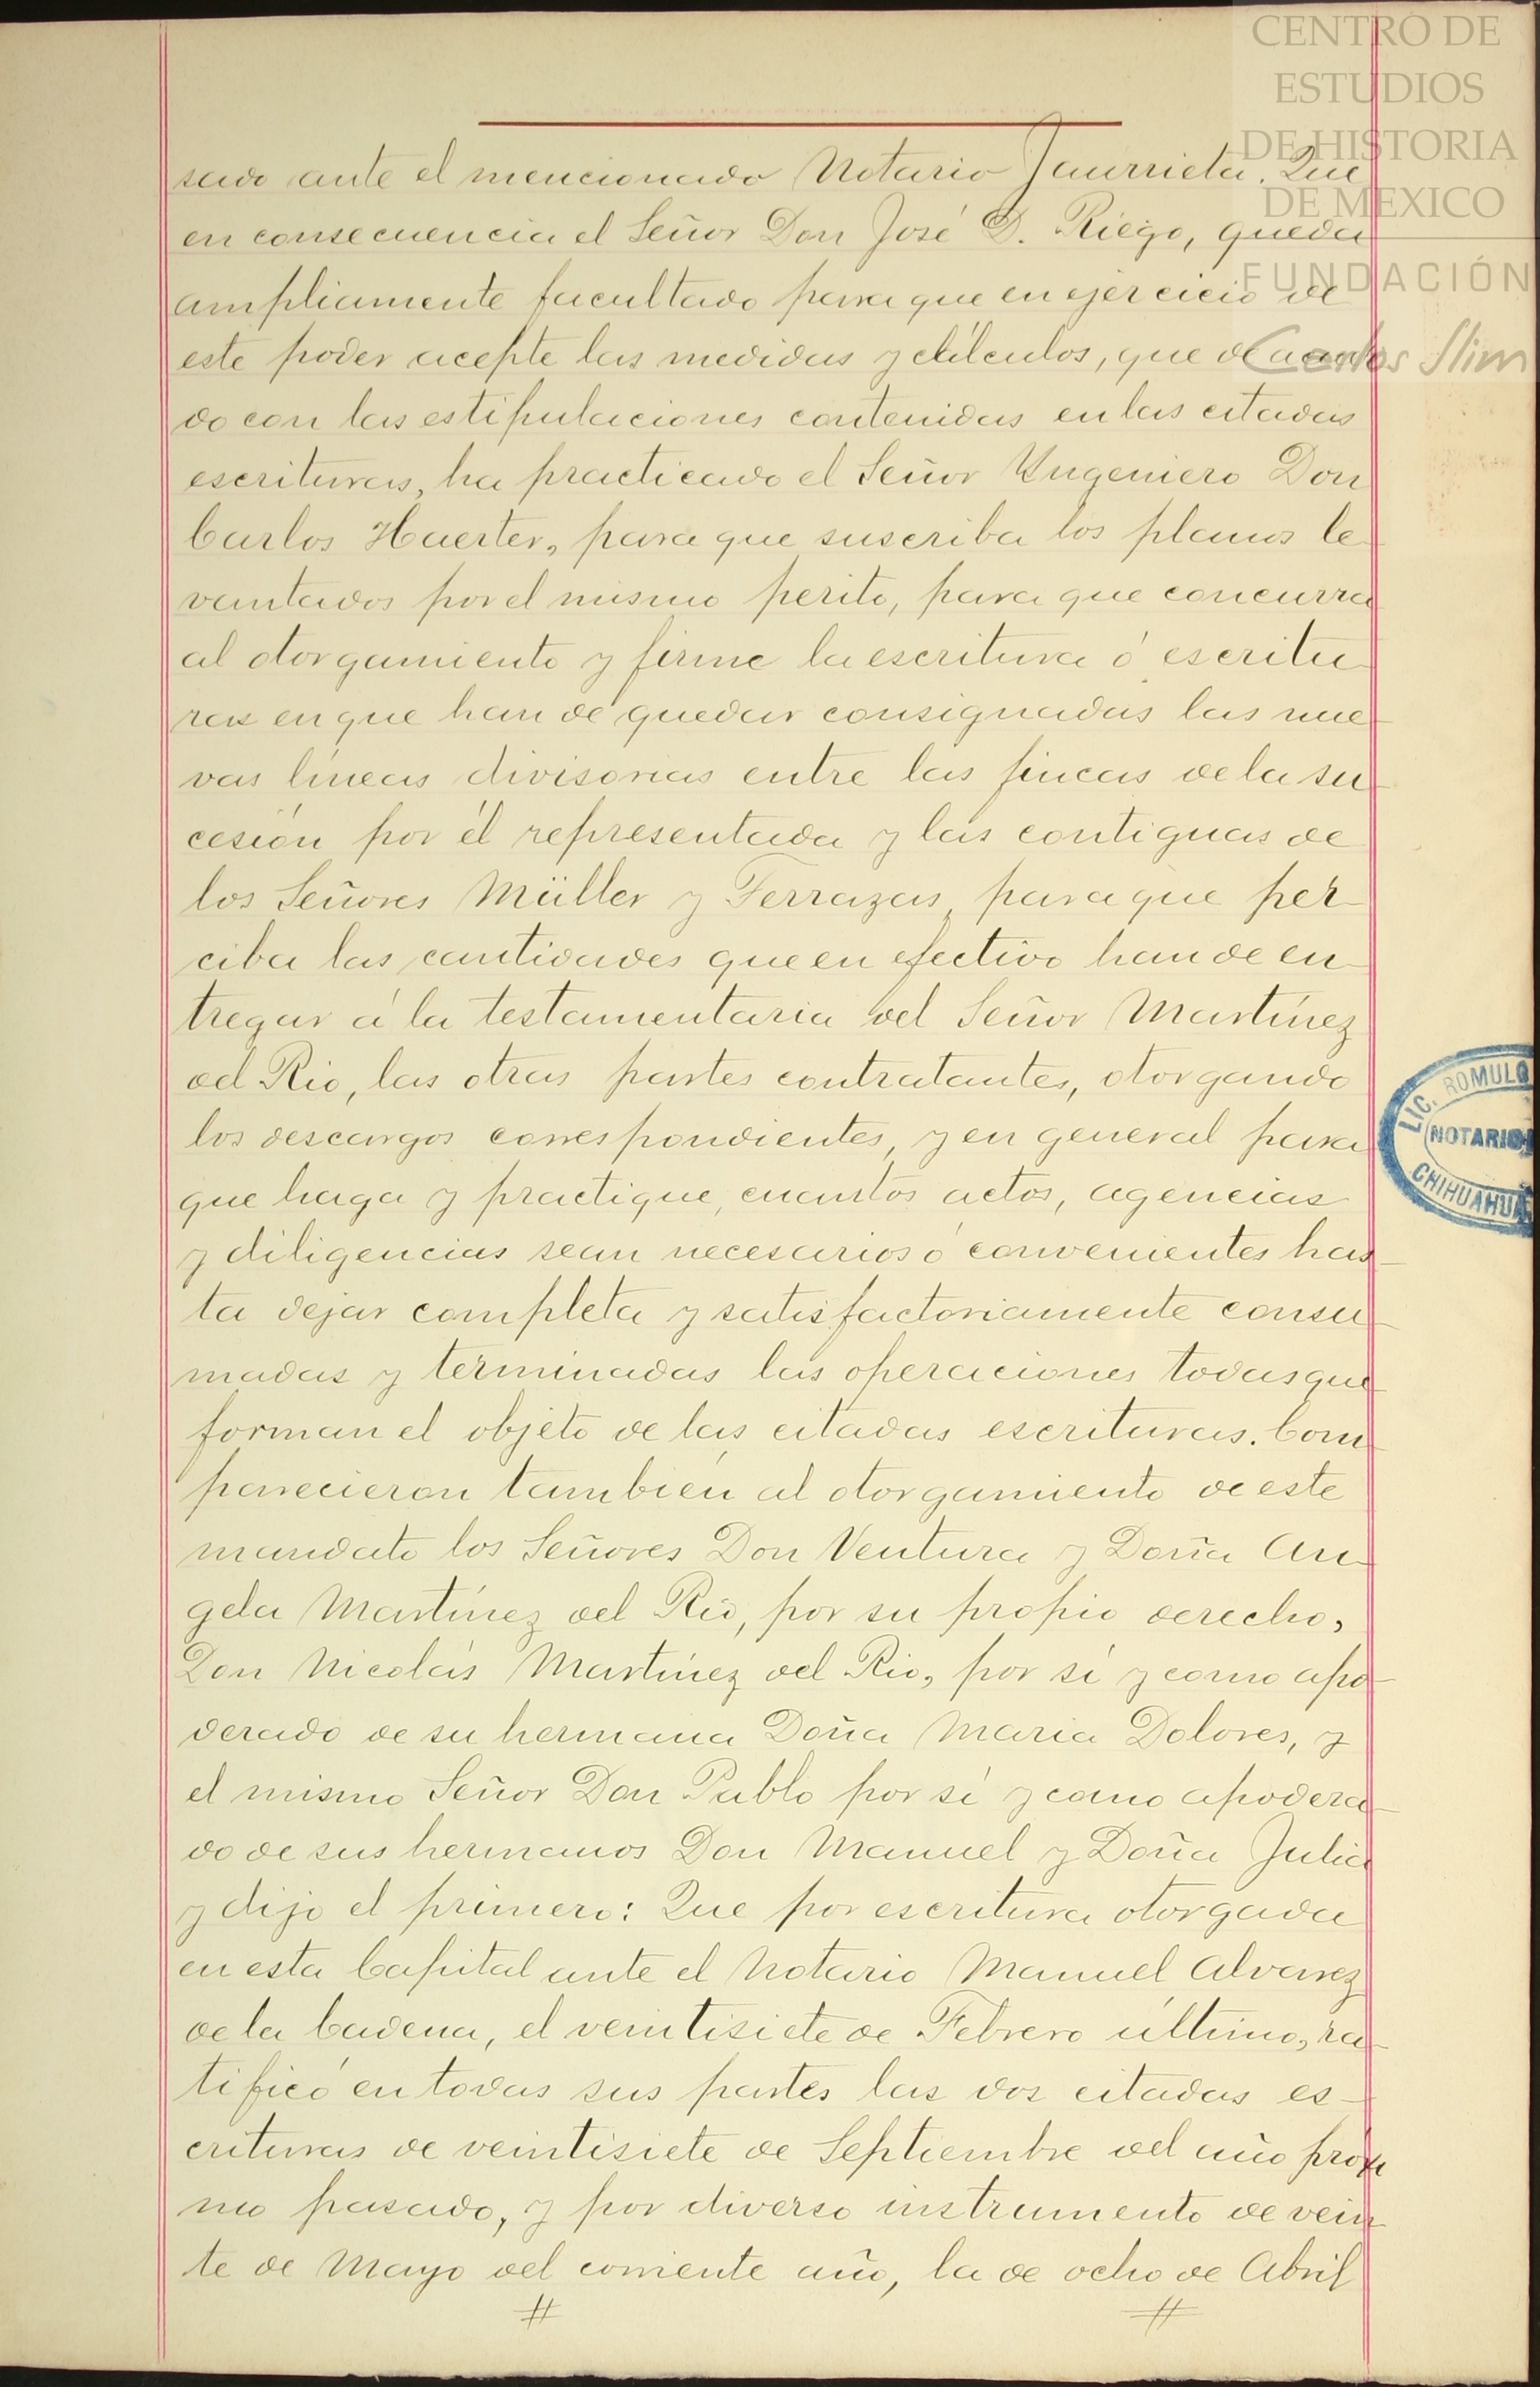 CENTRO DE
ESTUDIOS
DE HISTORIA
DE MEXICO
FUNDACIÓN
Carlos Slim
sado ante el mencionado Notario Jaurrieta. Que
en consecuencia el Señor Don José D. Riego, queda
ampliamente facultado para que en ejercicio de
este poder acepte las medidas y cálculos, que de acuer
do con las estipulaciones contenidas en las citadas
escrituras, ha practicado el Señor Yngeniero Don
Carlos Haerter, para que suscriba los planos le
vantados por el mismo perito, para que concurra
al otorgamiento y firme la escritura ó escritu
ras en que han de quedar consignadas las nue
vas líneas divisorias entre las fincas de la su
cesión por él representada y las contiguas de
los Señores Müller y Terrazas, para que per
ciba las cantidades que en efectivo han de en
tregar á la testamentaria del Señor Martínez
del Rio, las otras partes contratantes, otorgando
los descargos correspondientes, y en general para
que haga y practique, cuantos actos, agencias
y diligencias sean necesarios ó convenientes has
ta dejar completa y satisfactoriamente consu
madas y terminadas las operaciones todas que
forman el objeto de las citadas escrituras. Com
parecieron también al otorgamiento de este
mandato los Señores Don Ventura y Doña An
gela Martínez del Rio, por su propio derecho,
Don Nicolás Martínez del Rio, por sí y como apo
derado de su hermana Doña Maria Dolores, y
el mismo Señor Don Pablo por sí y como apodera
do de sus hermanos Don Manuel y Doña Julia
y dijo el primero: Que por escritura otorgada
en esta Capital ante el Notario Manuel Alvarez
de la Cadena, el veintisiete de Febrero último, ra
tificó en todas sus partes las dos citadas es-
crituras de veintisiete de Septiembre del año próxi
mo pasado, y por diverso instrumento de vein
te de Mayo del corriente año, la de ocho de Abril
LIC. ROMULO
NOTARIO
CHIHUAHUA